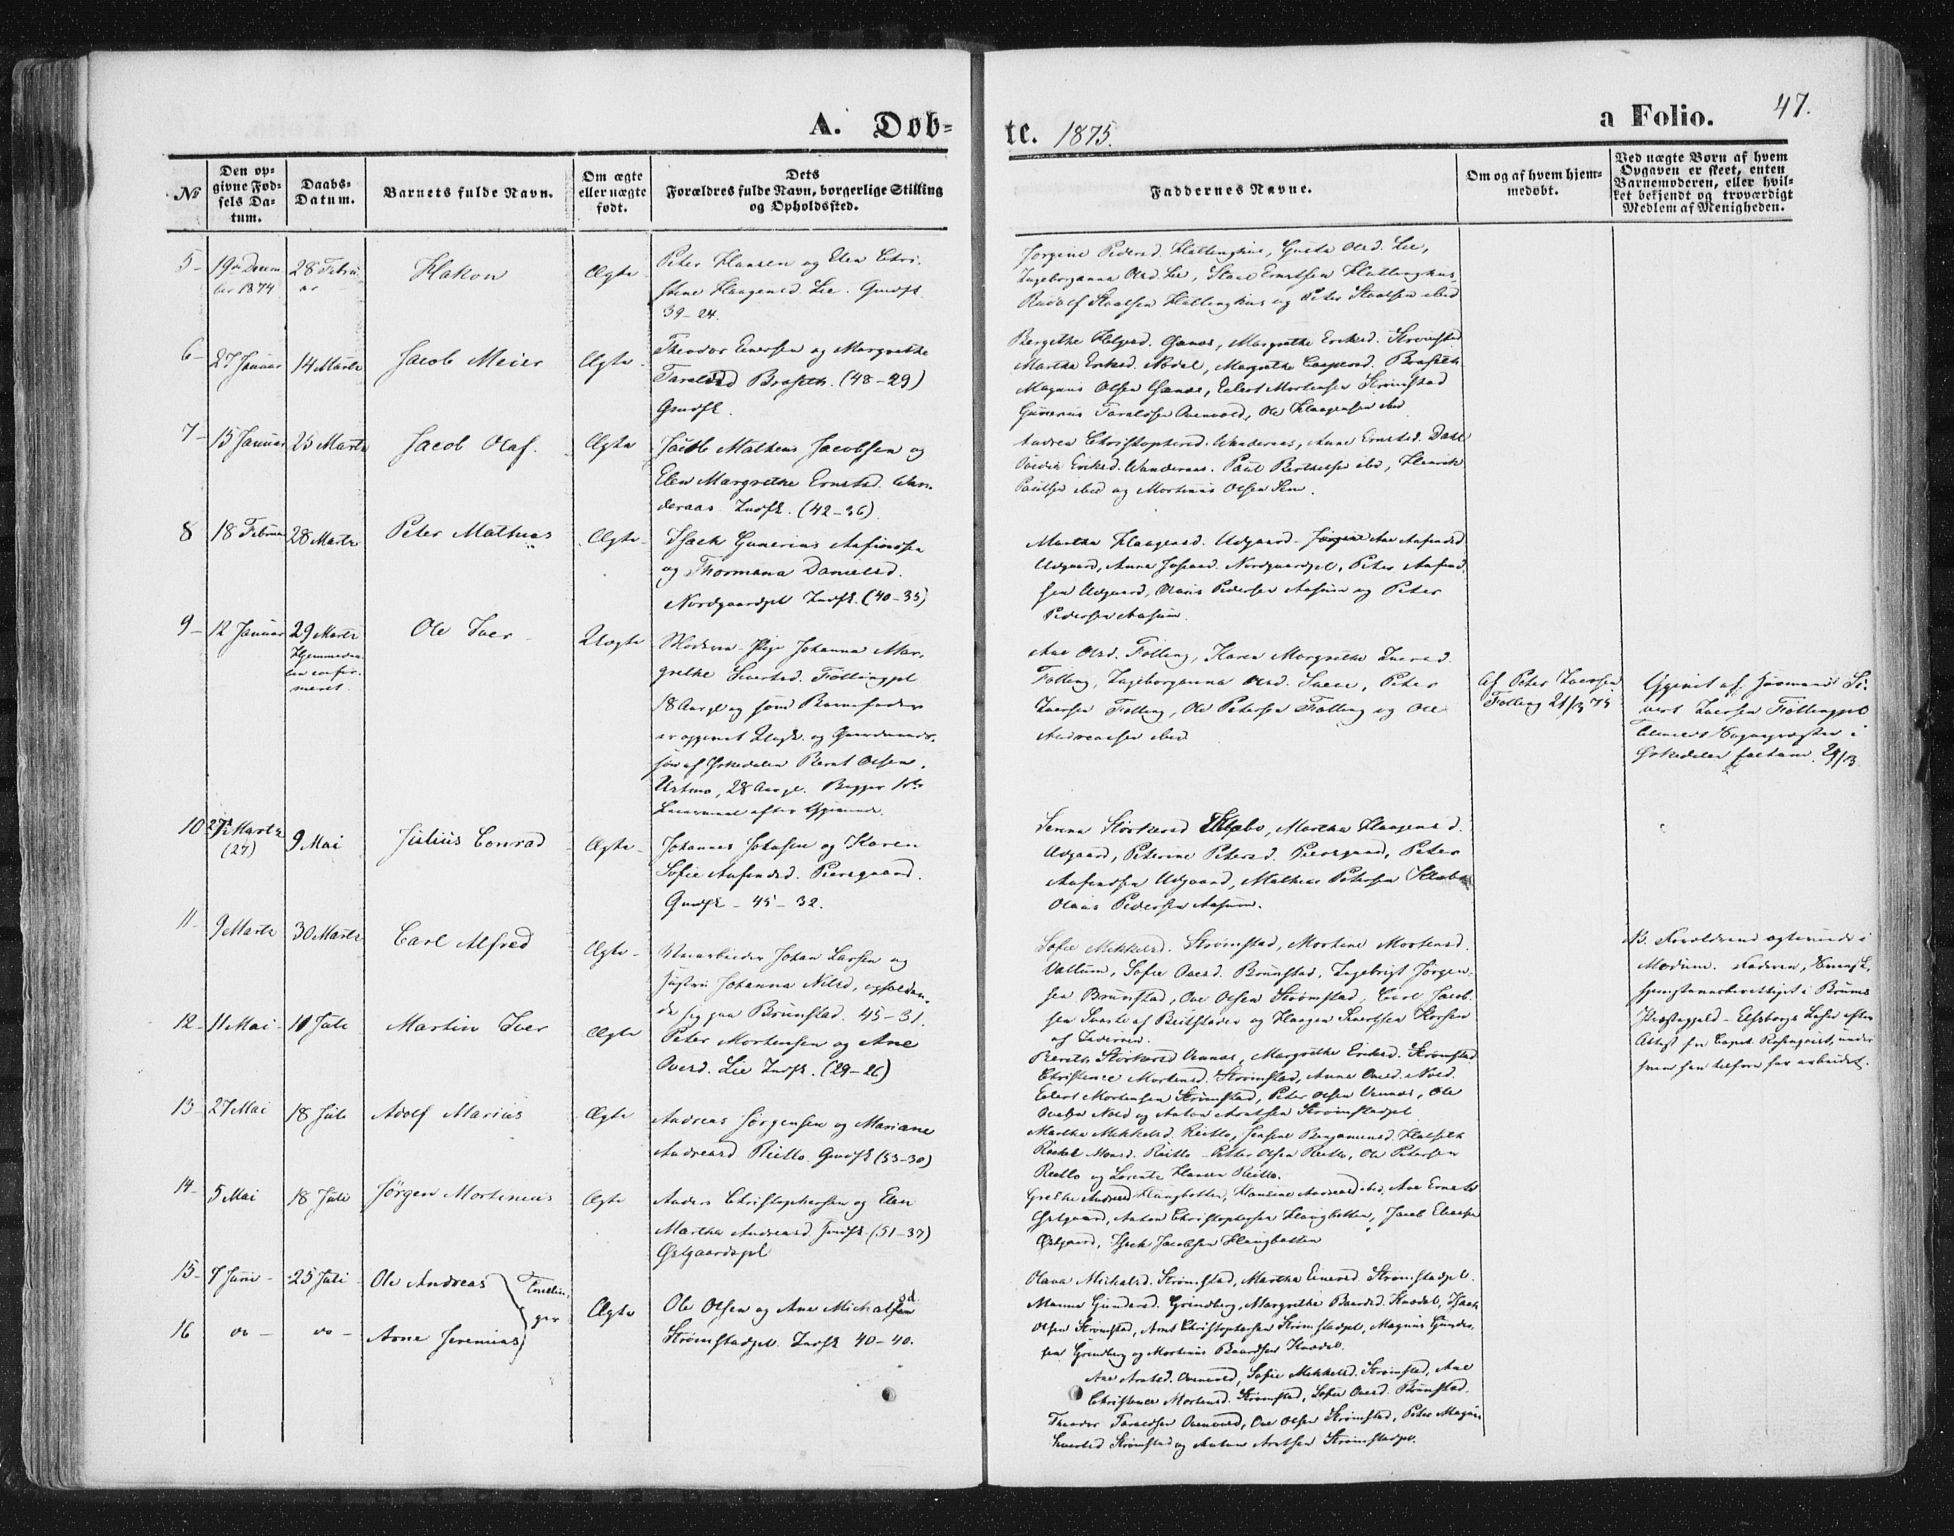 A. Døb-
te. 1875.
a Folio. 47.
№
Den op-
givne Fød-
sels Da-
tum.
Daabs-
Datum.
Barnets fulde Navn.
Om ægte
eller uægte
født.
Dets
Forældres fulde Navn, borgerlige Stilling
og Opholdssted.
Faddernes Navne.
Om og af hvem hjem-
medøbt.
Ved uægte Børn af hvem
Opgaven er skeet, enten
Barnemoderen, eller hvil-
ket bekjendt og troværdigt
Medlem af Menigheden.
5-
19de Decem
ber 1874
28 Febru
ar
Hakon
Ægte
Peter Hansen og Elen Chri-
stine Haagensd. Lee. Gmdsk.
39-24.
Jørgine Pedersd. Hallinghus, Gusta Olsd. Lee,
Ingeborganna Olsd. Lee, Staal Ernstsen Hallinghus,
Rudolf Staalsen Hallinghus og Peter Staalsen ibid
6-
27 Januar
14 Marts
Jacob Meier
Ægte
Theodor Einersen og Margrethe
Taralsd Braseth. (48-29)
Gmdsk.
Bergithe Helgesd. Oanæs, Margrethe Eriksd. Strømstad
Martha Eriksd. Nødal, Margrethe Caspersd. Braseth
Magnus Olsen Oanæs, Eilert Mortensen Strømstad
Gunerius Taraldsen Ovenvold, Ole Haagensen ibid
7-
15 Januar
25 Marts
Jacob Olaf.
Ægte
Jacob Matheus Jacobsen og
Elen Margrethe Ernstsd. Wan-
deraas. Indsk. (42-36)
Andrea Christophersd. Wanderaas, Anne Ernstsd. Dahl
Eriksd. Wanderaas. Paul Berthelsen ibid, Henrik
Paulsen ibid og Mortinus Olsen
8
18 Februar
28 Marts
Peter Mathias
Ægte
Isack Gunerius Aasfinnsen
og Thormana Danielsd.
Nordgaardspl Indsk. (40-35)
Martha Haagensd. Udgaard
Udgaard, Anna Nordgaardspl, Peter
sen Udgaard, Olaus Pedersen Aasum og Peter
Pedersen Aasum.
9-
12 Januar
29 Marts
Hjemmedaa-
ben confir-
meret.
Ole Iver
Uægte
Moderen Pige Johanna Mar-
grethe Sivertsd. Føllingpl
18 Aar gl og som Barnefader
er opgivet Ungk. og Gaardmands-
søn af Orkedalen Bernt Olsen
28 Aar gl. Begges 1ste
Leiermaal efter Opgivende.
Ane Olsd. Følling, Karen Margrethe Iversd.
Følling, Ingeborganna Olsd. Peter
Iversen Følling, Ole Petersen Følling og Ole
Andreassen ibid
af Peter Iversen
Følling 21/1 75
Opgivet af Husmand Si-
vert Iversen Føllingpl
Orkedalen 29/3.
10
27 Marts
(27)
9 Mai
Julius Conrad
Ægte
Johannes Johnsen og Karen
Sofie Aasfindsd. Piersgaard.
Gmdsk - 45-32.
Serina Størkersd Klæbo, Martha Haagensd.
Udgaard, Peterine Petersd. Piersgaard, Peter
Udgaard, Mathias Petersen Klæbo
Olaus Pedersen Aasum.
11-
9 Marts
30 Marts
Carl Alfred
Ægte-
Veiarbeider Johan Larsen og
Hustru Johanna Nilsd, opholden-
de sig paa Brunstad. 45-31.
Sofie Mekkelsd. Strømstad, Mortine Mortensd.
Vallum, Sofie Ovesd. Brunstad, Ingebrigt Jørgen-
sen Brunstad, Ove Olsen Strømstad, Carl Jacob-
sen Svarte af Beitstaden og Haagen Sivertsen Korsen
af Inderøen.
NB. Forældrene ægteviede i
Modum. Faderen, Svensk,
hjemstamsberettiget i Brunns
Præstegjeld - Elfsborgs Lehn efter
Attest fra Capt. Rosenqvist, under
hvem han tilforn har arbeidet.
12-
11 Mai
11 Juli
Martin Iver
Ægte
Peter Mortensen og Ane
Oversd. Lee Indsk. (29-26)
Bereth Størkersd Vennæs, Margrethe Eriksd. Strømstad
Christence Mortensd. Strømstad, Anne Ovesd. Nøvd.
Eilert Mortensen Strømstad, Peter Olsen Vennæs, Ole
Ovesen Nøvd og Anton Arntsen Strømstadpl
13-
27 Mai
18 Juli
Adolf Marius
Ægte
Andreas Jørgensen og Mariane
Andreasd Reitlo. Gmdsk (33-30)
Martha Mekkelsd. Reitlo, Jensine Benjaminsd. Halseth
Rachel Monsd. Reitlo - Petter Olsen Reitlo, Ole Petersen
Reitlo og Lorents Hansen Reitlo.
14-
5 Mai
18 Juli
Jørgen Mortenius
Ægte
Anders Christophersen og Elen
Martha Andreasd. Indsk. (51-37)
Østgaardspl
Grethe Andersd Haugbotten, Hansine Andreasd ibid, Ane Ernstsd
Østgaard, Anton Christophersen Haugbotten, Jacob Eliasen
Østgaard, Isack Jacobsen Haugbotten
15-
7 Juni -
25 Juli
Ole Andreas
Tvillin-
ger
Ægte
Ole Olsen og Ane Michalsd
Strømstadpl. Indsk 40-40.
Olava Michalsd. Strømstad, Martha Einersd. Strømstadpl.
Manna Gundersd. Grindberg, Margrethe Baardsd. Kvedal, Isack
Olsen Strømstad, Arnt Christophersen Strømstadpl, Magnus Gunder-
sen Grindberg og Mortinus Baardsen Kvædal.
16
do -
do -
Arne Jeremias
Ane Arntsd. Ovenvold, Sofie Mekkelsd. Strømstad, Ane
Christence Mortensd. Strømstad, Sofie Oversd. Brunstad.
Theodor Taraldsen Ovenvold, Ove Olsen Strømstad, Peter Magnus
Sivertsen Strømstad og Anton Arntsen Strømstadpl.